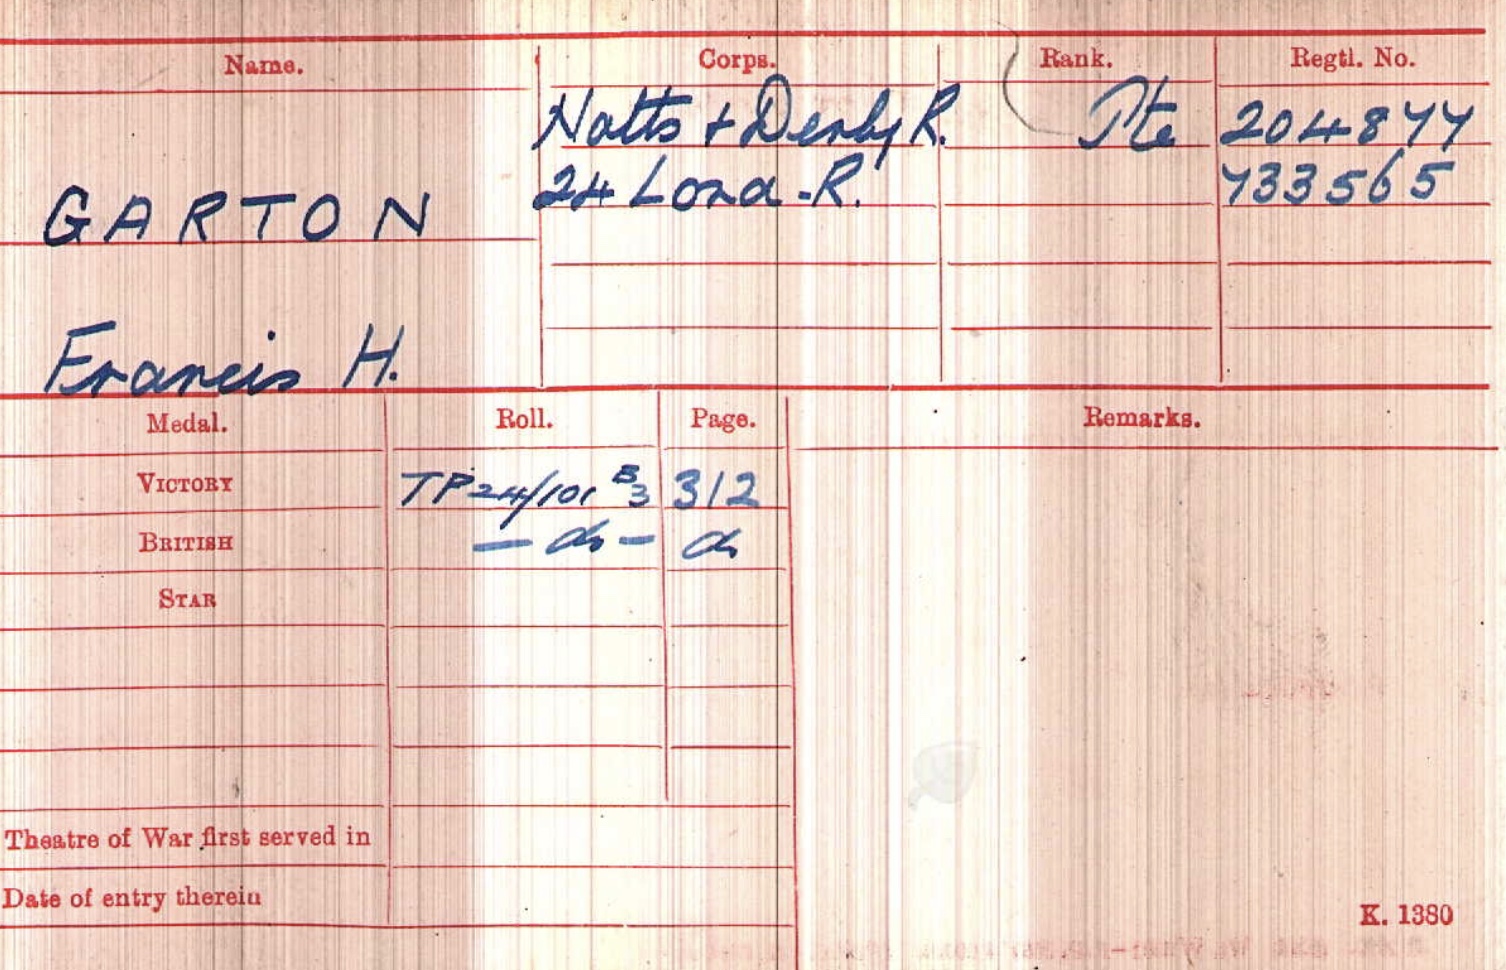 Name. Corps. Rank. Regtl. No.
Notts + Derby R. Pte 204877
GARTON 24 Lond. R. 733565
Francis H.
Medal. Roll. Page. Remarks.
VICTORY TP 24/101 B3 312
BRITISH – do – do
STAR
Theatre of War first served in
Date of entry therein
K. 1380